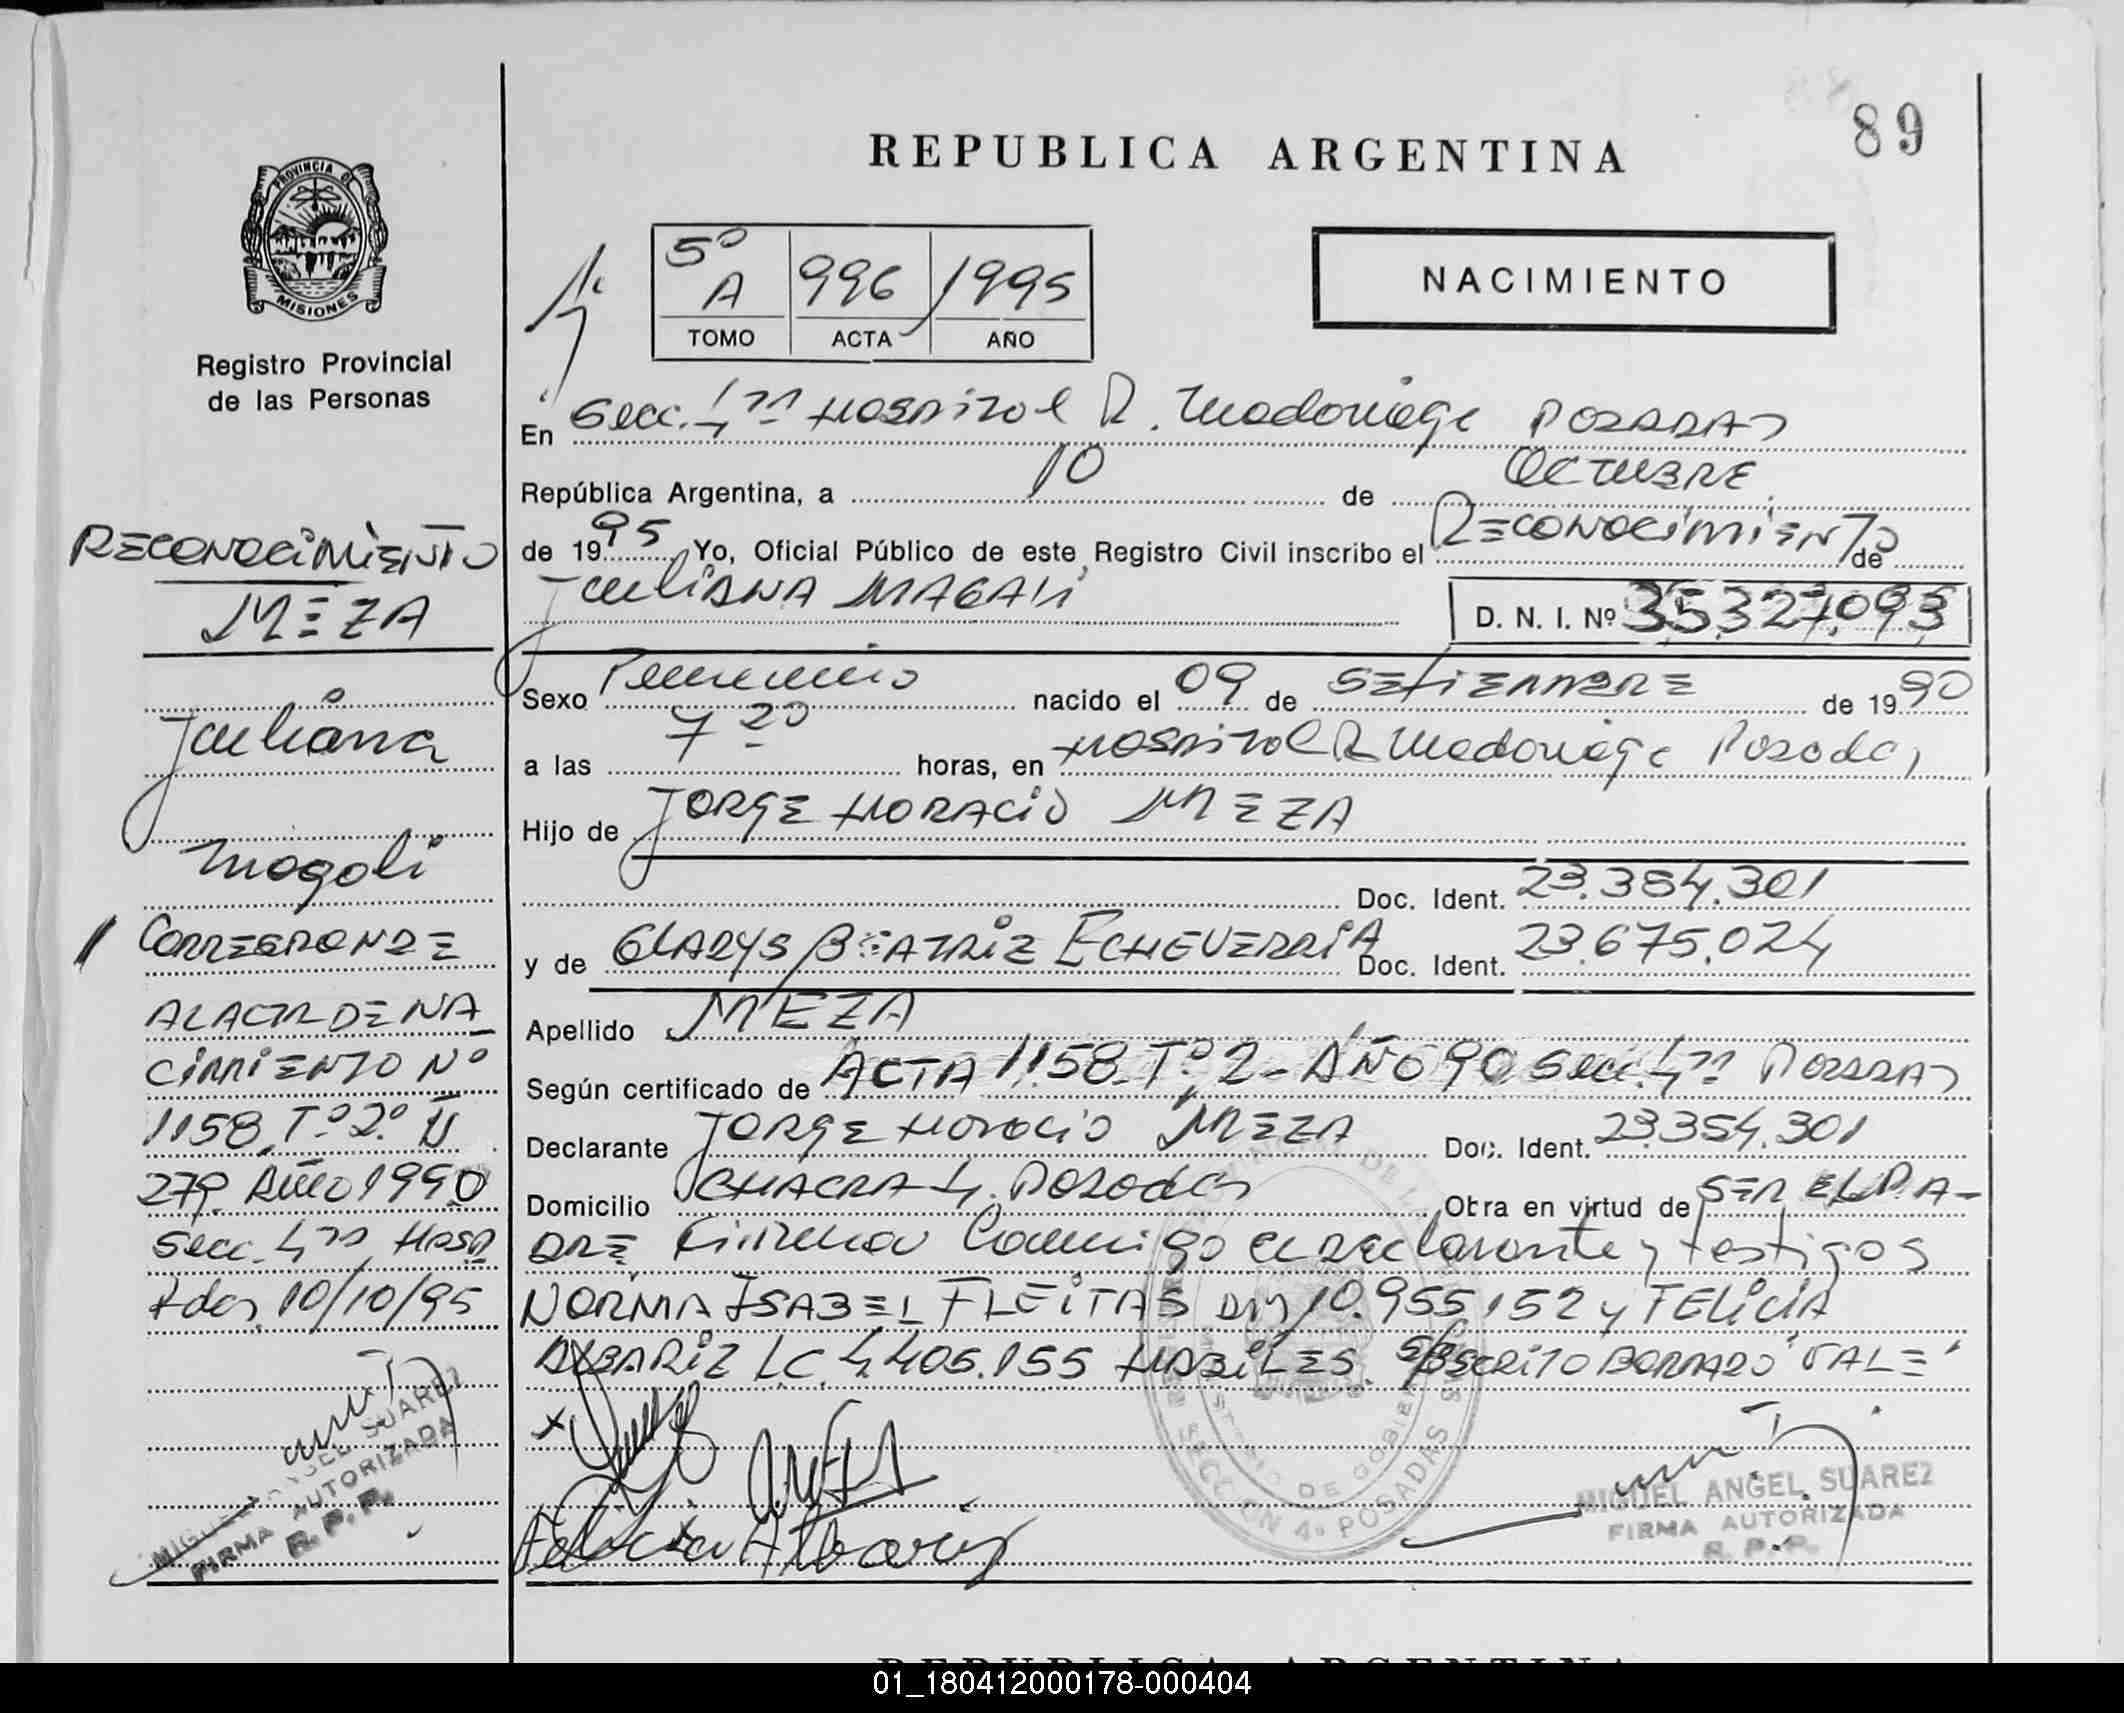 89
REPUBLICA ARGENTINA
PROVINCIA DE
MISIONES
Registro Provincial
de las Personas
5º
A 996 1995
TOMO ACTA AÑO
NACIMIENTO
En Secc. 4ta Hospital R. Madariaga POSADAS
República Argentina, a 10 de OCTUBRE
de 1995 Yo, Oficial Público de este Registro Civil inscribo el RECONOCIMIENTO de
JULIANA MAGALI
D. N. I. Nº 35.327.093
Sexo Femenino nacido el 09 de SETIEMBRE de 1990
a las 7 20 horas, en Hospital R Madariaga Posadas
Hijo de JORGE HORACIO MEZA
Doc. Ident. 23.354.301
y de GLADYS BEATRIZ ECHEVERRIA Doc. Ident. 23.675.024
Apellido MEZA
Según certificado de ACTA 1158 Tº 2 - AÑO 90 Secc. 4ta POSADAS
Declarante JORGE Horacio MEZA Doc. Ident. 23.354.301
Domicilio CHACRA 4. Posadas Obra en virtud de SER EL PA-
DRE Firman Conmigo el declarante y testigos
NORMA ISABEL FLEITAS DNI 10.955.152 y FELICIA
ALBARIZ L.C. 4.405.155 HABILES. S/ESCRITO BORRADO "VALE"
Felicia Albariz
MIGUEL ANGEL SUAREZ
FIRMA AUTORIZADA
R. P. P.
SECCION 4ª POSADAS
RECONOCIMIENTO
MEZA
Juliana
Magali
CORRESPONDE
AL ACTA DE NA
CIMIENTO Nº
1158, Tº 2º
279 Año 1990
Secc. 4ta HOSP
Pdas, 10/10/95
MIGUEL ANGEL SUAREZ
FIRMA AUTORIZADA
R. P. P.
REPUBLICA ARGENTINA
01_180412000178-000404